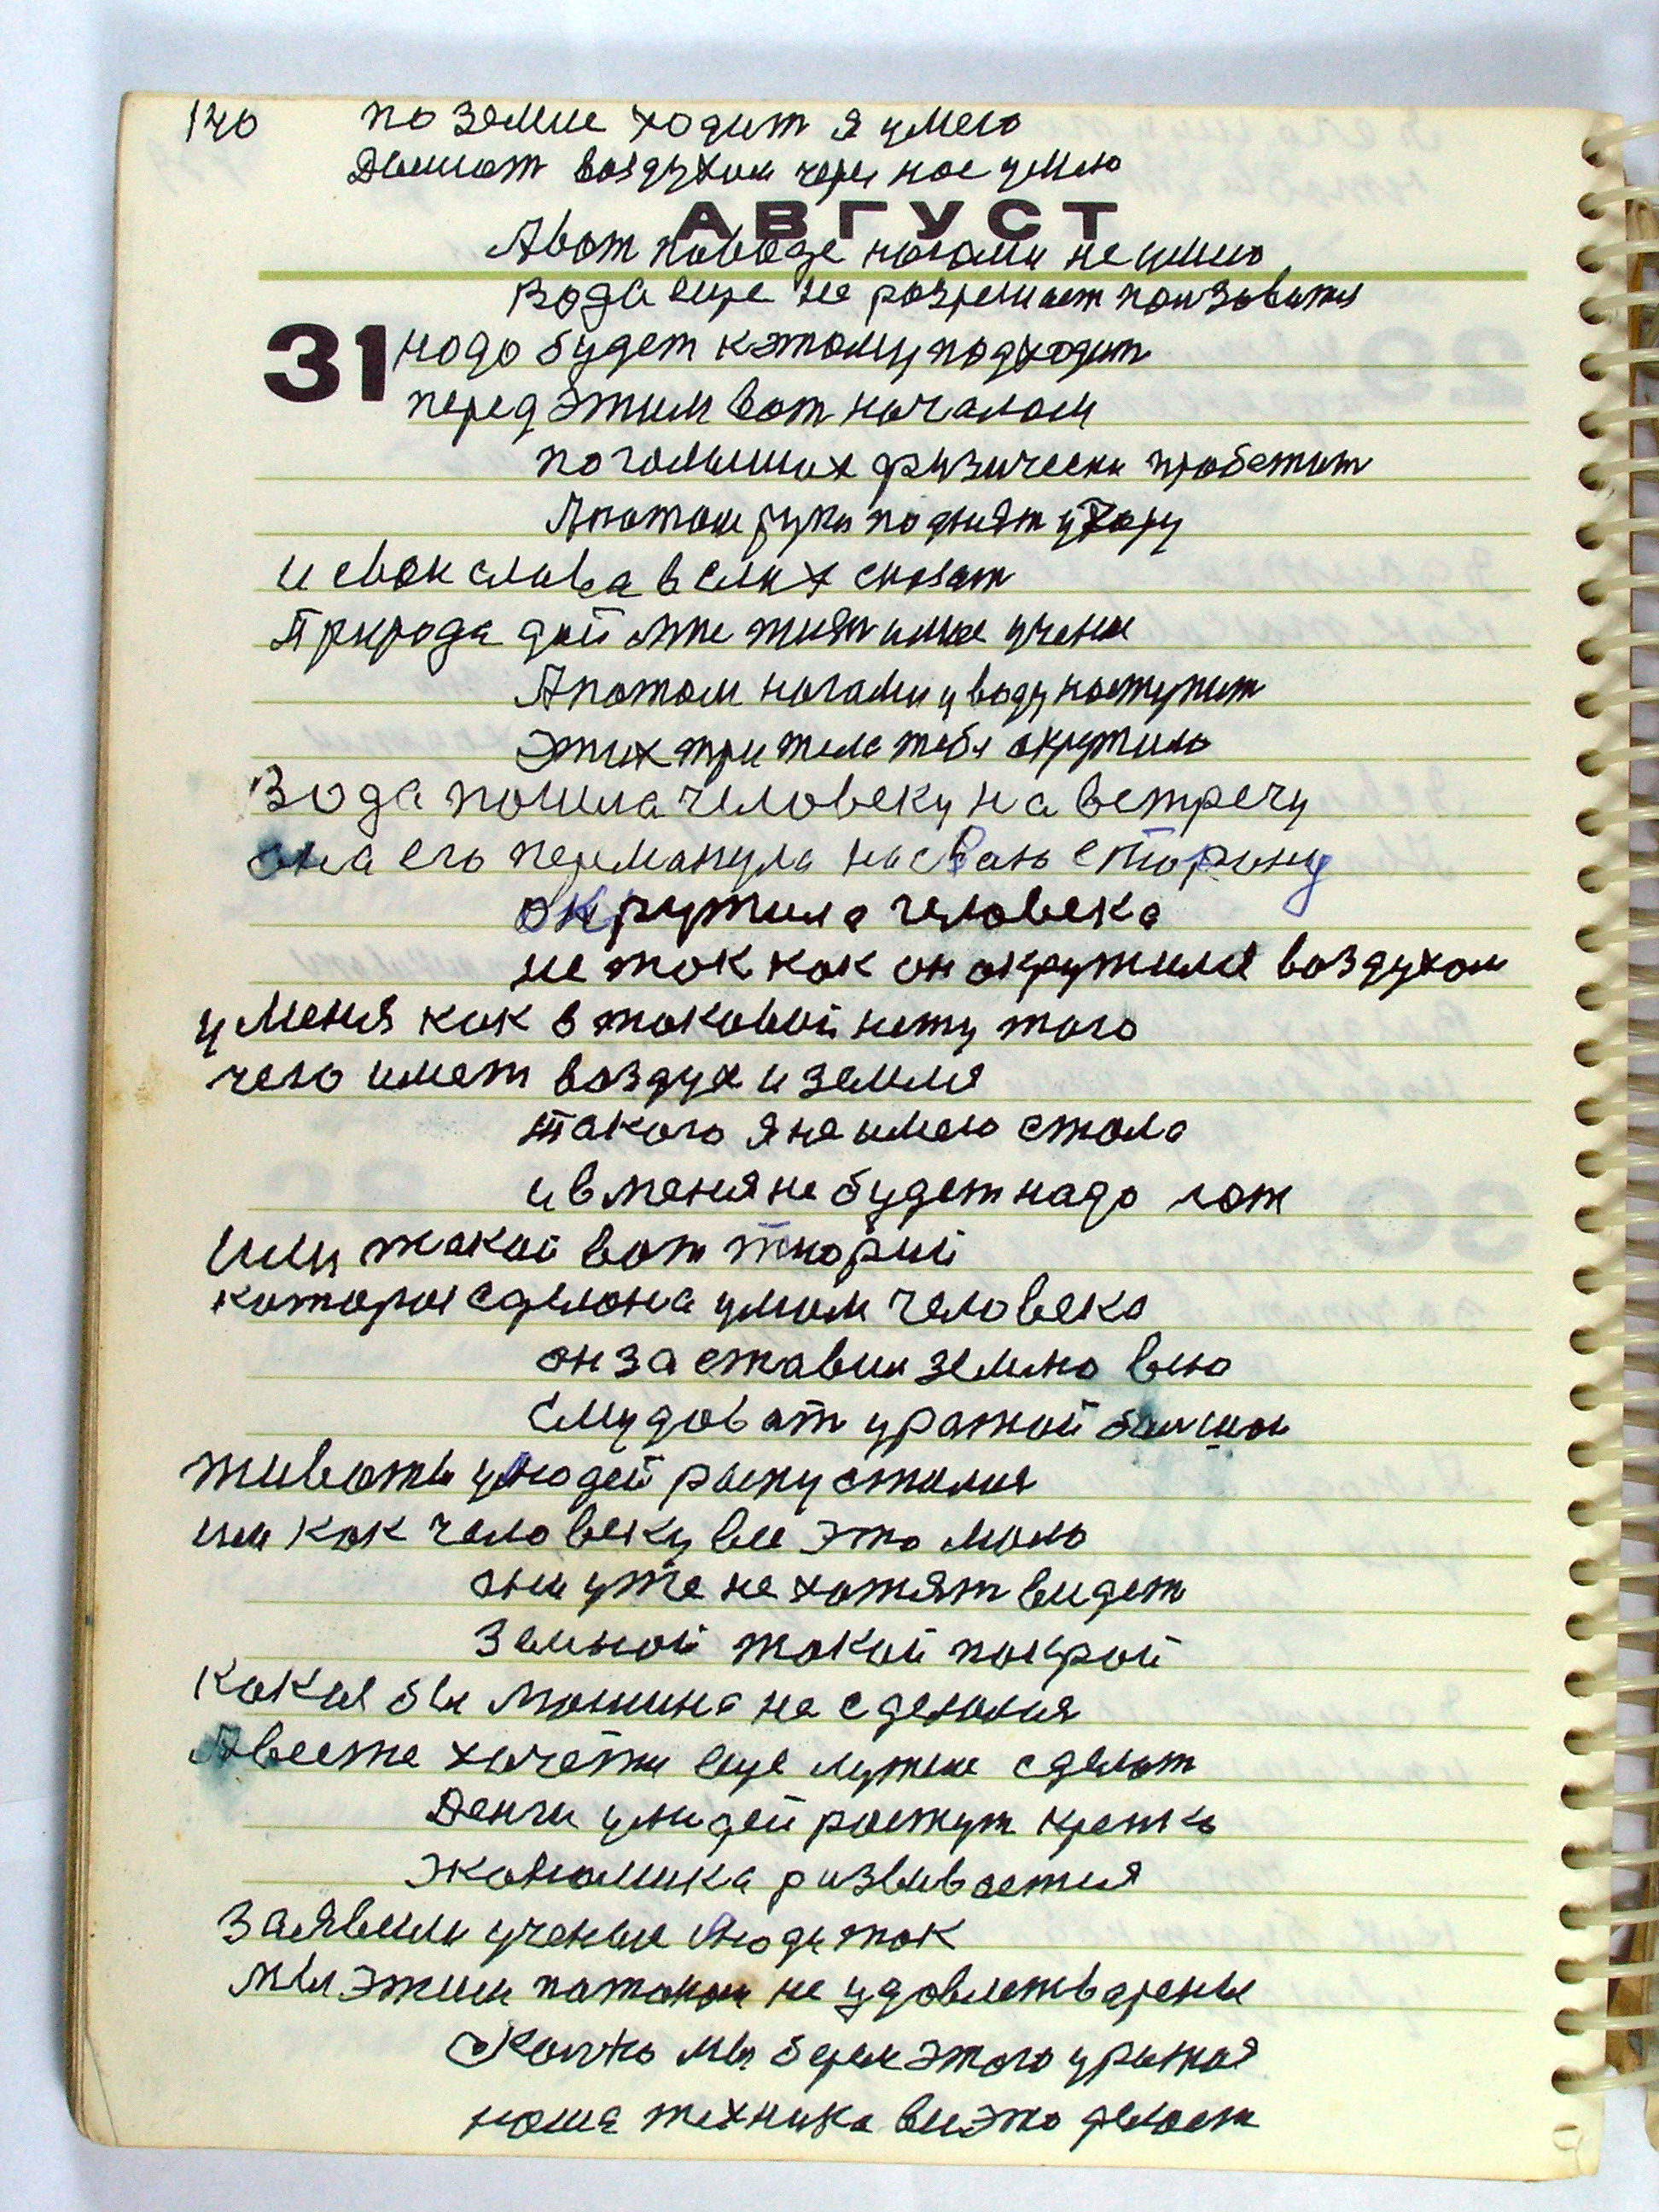 140 по земле ходит я умею
Дышат воздухом через нос умею
АВГУСТ
Авот поводе ногами не умею
Вода еще не разрешает
31 надо будет кэтому подходит
перед этим вот началом
физически
Апотом руки поднят
и свои слова вслих сказат
Природа дай мне учения
Апотом ногами у воду наступит
Этих три тела тебя окружило
Вода пошла человеку на встречу
она его переманула на сваю сторону
окружила человека
не так как он окружился воздухом
у меня как в таковой нету того
чего имеет воздух и земля
такого я не имею стола
и в меня не будет надо лож
или такой вот
которая сделона умом человека
он заставил землю всю
уражай
животы у людей распустилися
им как человеку все это мало
они уже не хотят видет
Земной такой покрой
какия бы машина не сделался
Авсеже хочется еще лутше сделат
Денги у людей растут крепко
экономика развивается
Заявили ученые люди так
мы этим не удовлетварены
Колько мы берем этого уражая
наша техника все это делает